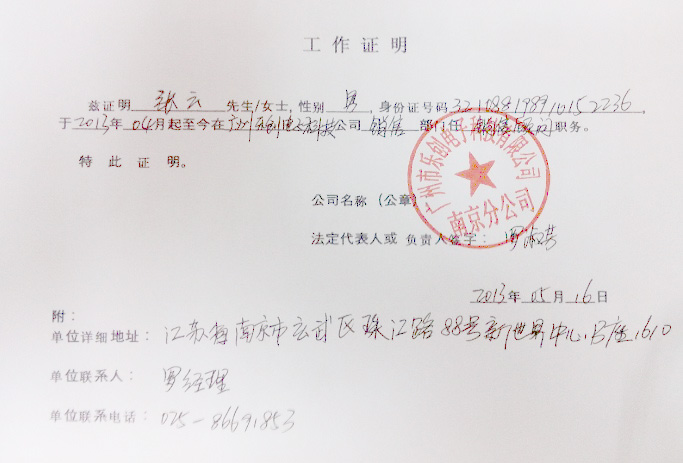 工作证明
兹证明 张云 先生/女士,性别 男 ,身份证号码 321088198910152236 ,
于 2013 年 04 月起至今在 广州乐创电子科技公司 销售 部门任 销售顾问 职务。
特此证明。
公司名称（公章）
广州市乐创电子科技有限公司
南京分公司
法定代表人或 负责人签字: 罗淑芳
2013 年 05 月 16 日
附:
单位详细地址: 江苏省南京市玄武区珠江路88号新世界中心.B座1610
单位联系人: 罗经理
单位联系电话: 025-86691853